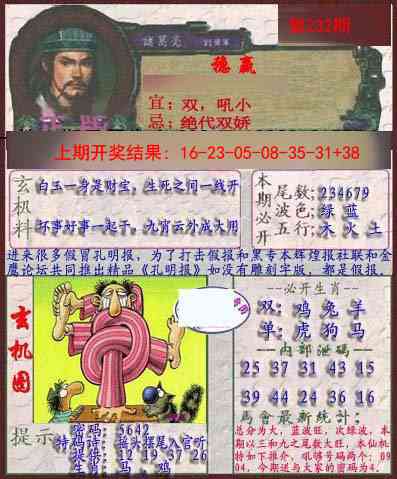 第232期
諸葛亮 劉備軍
稳赢
正版
宣：双，吼小
忌：绝代双娇
上期开奖结果：16-23-05-08-35-31+38
玄机料
白玉一身是财宝，生死之间一线开
坏事好事一起干。九霄云外成大用
本期必开
尾数:234679
波色:绿 蓝
五行:木 火 土
进来很多假冒孔明报，为了打击假报和黑专本辉煌报社联和金
鹰论坛共同推出精品《孔明报》如没有雕刻字版，都是假报。
玄机图
必开生肖
双: 鸡 兔 羊
单: 虎 狗 马
内部泄码
25 37 31 43 15
39 44 24 36 16
馬會最新統计：
总分为大，蓝波旺，次绿波，本
期以三和九之尾数大旺，本仙机
特如下推介，吼够号码两个：09
04，今期送与大家的密码为4.
提示
密码: 5642
特码诗: 摇头摆尾入官听
提供: 12 19 37 26
生肖: 马 鸡